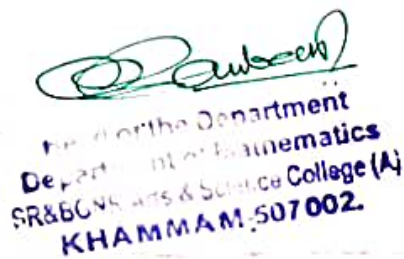 Head of the Department
Department of Mathematics
SR&BGNR Arts & Science College (A)
KHAMMAM-507002.